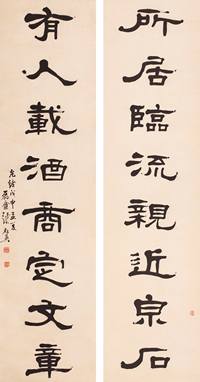 所居臨流親近泉石
有人載酒商定文章
光緒戊申五